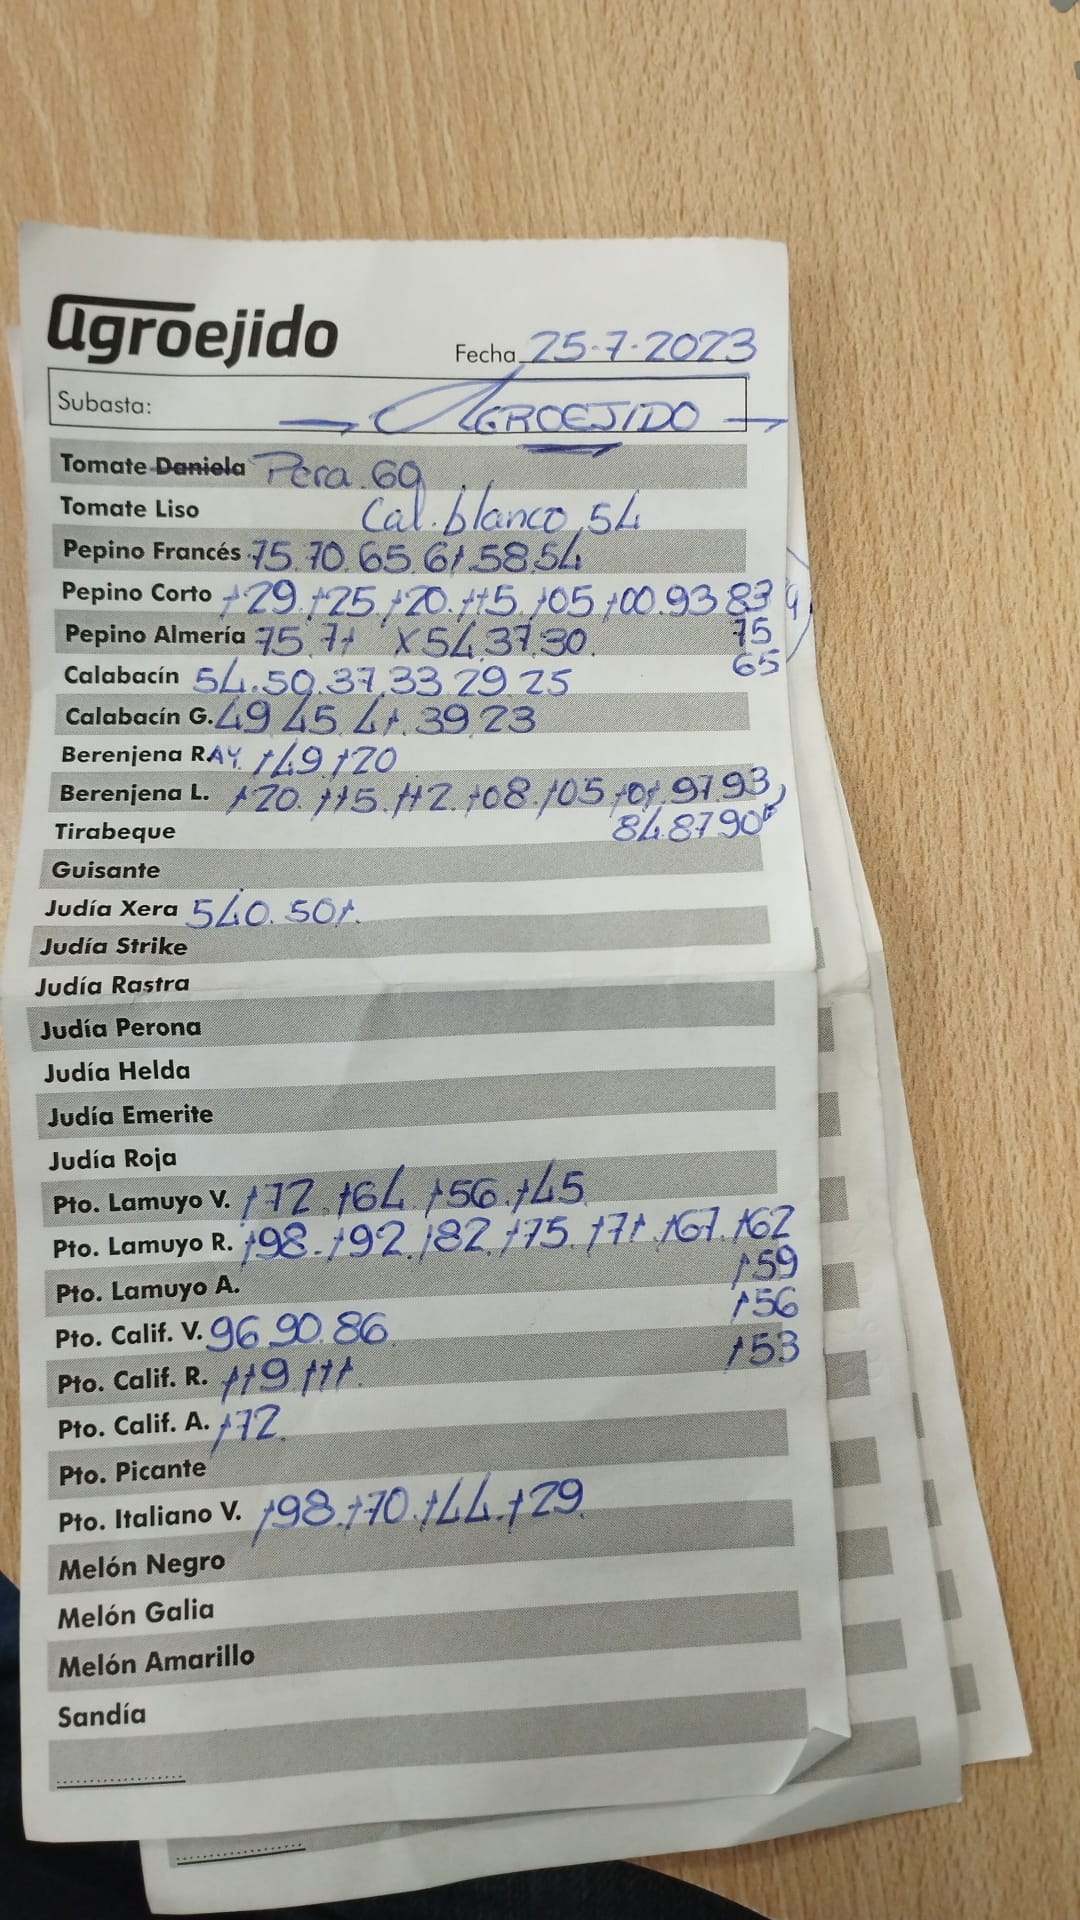 agroejido
Fecha 25-7-2023
Subasta: AGROEJIDO
Tomate Daniela Pera. 69
Tomate Liso Cal. blanco 54
Pepino Francés 75.70.65.61.58.54
Pepino Corto 129.125.120.115.105.100.93 83
75
65
Pepino Almería 75.71 X 54.37.30.
Calabacín 54.50.37.33.29.25
Calabacín G. 49 45.41.39.23
Berenjena RAY. 149.120
Berenjena L. 120.115.112.108.105.101.97.93
84.87.90
Tirabeque
Guisante
Judía Xera 540.501.
Judía Strike
Judía Rastra
Judía Perona
Judía Helda
Judía Emerite
Judía Roja
Pto. Lamuyo V. 172.164.156.145
Pto. Lamuyo R. 198.192.182.175.171.167.162
159
156
153
Pto. Lamuyo A.
Pto. Calif. V. 96.90.86
Pto. Calif. R. 119.111.
Pto. Calif. A. 172.
Pto. Picante
Pto. Italiano V. 198.170.144.129.
Melón Negro
Melón Galia
Melón Amarillo
Sandía